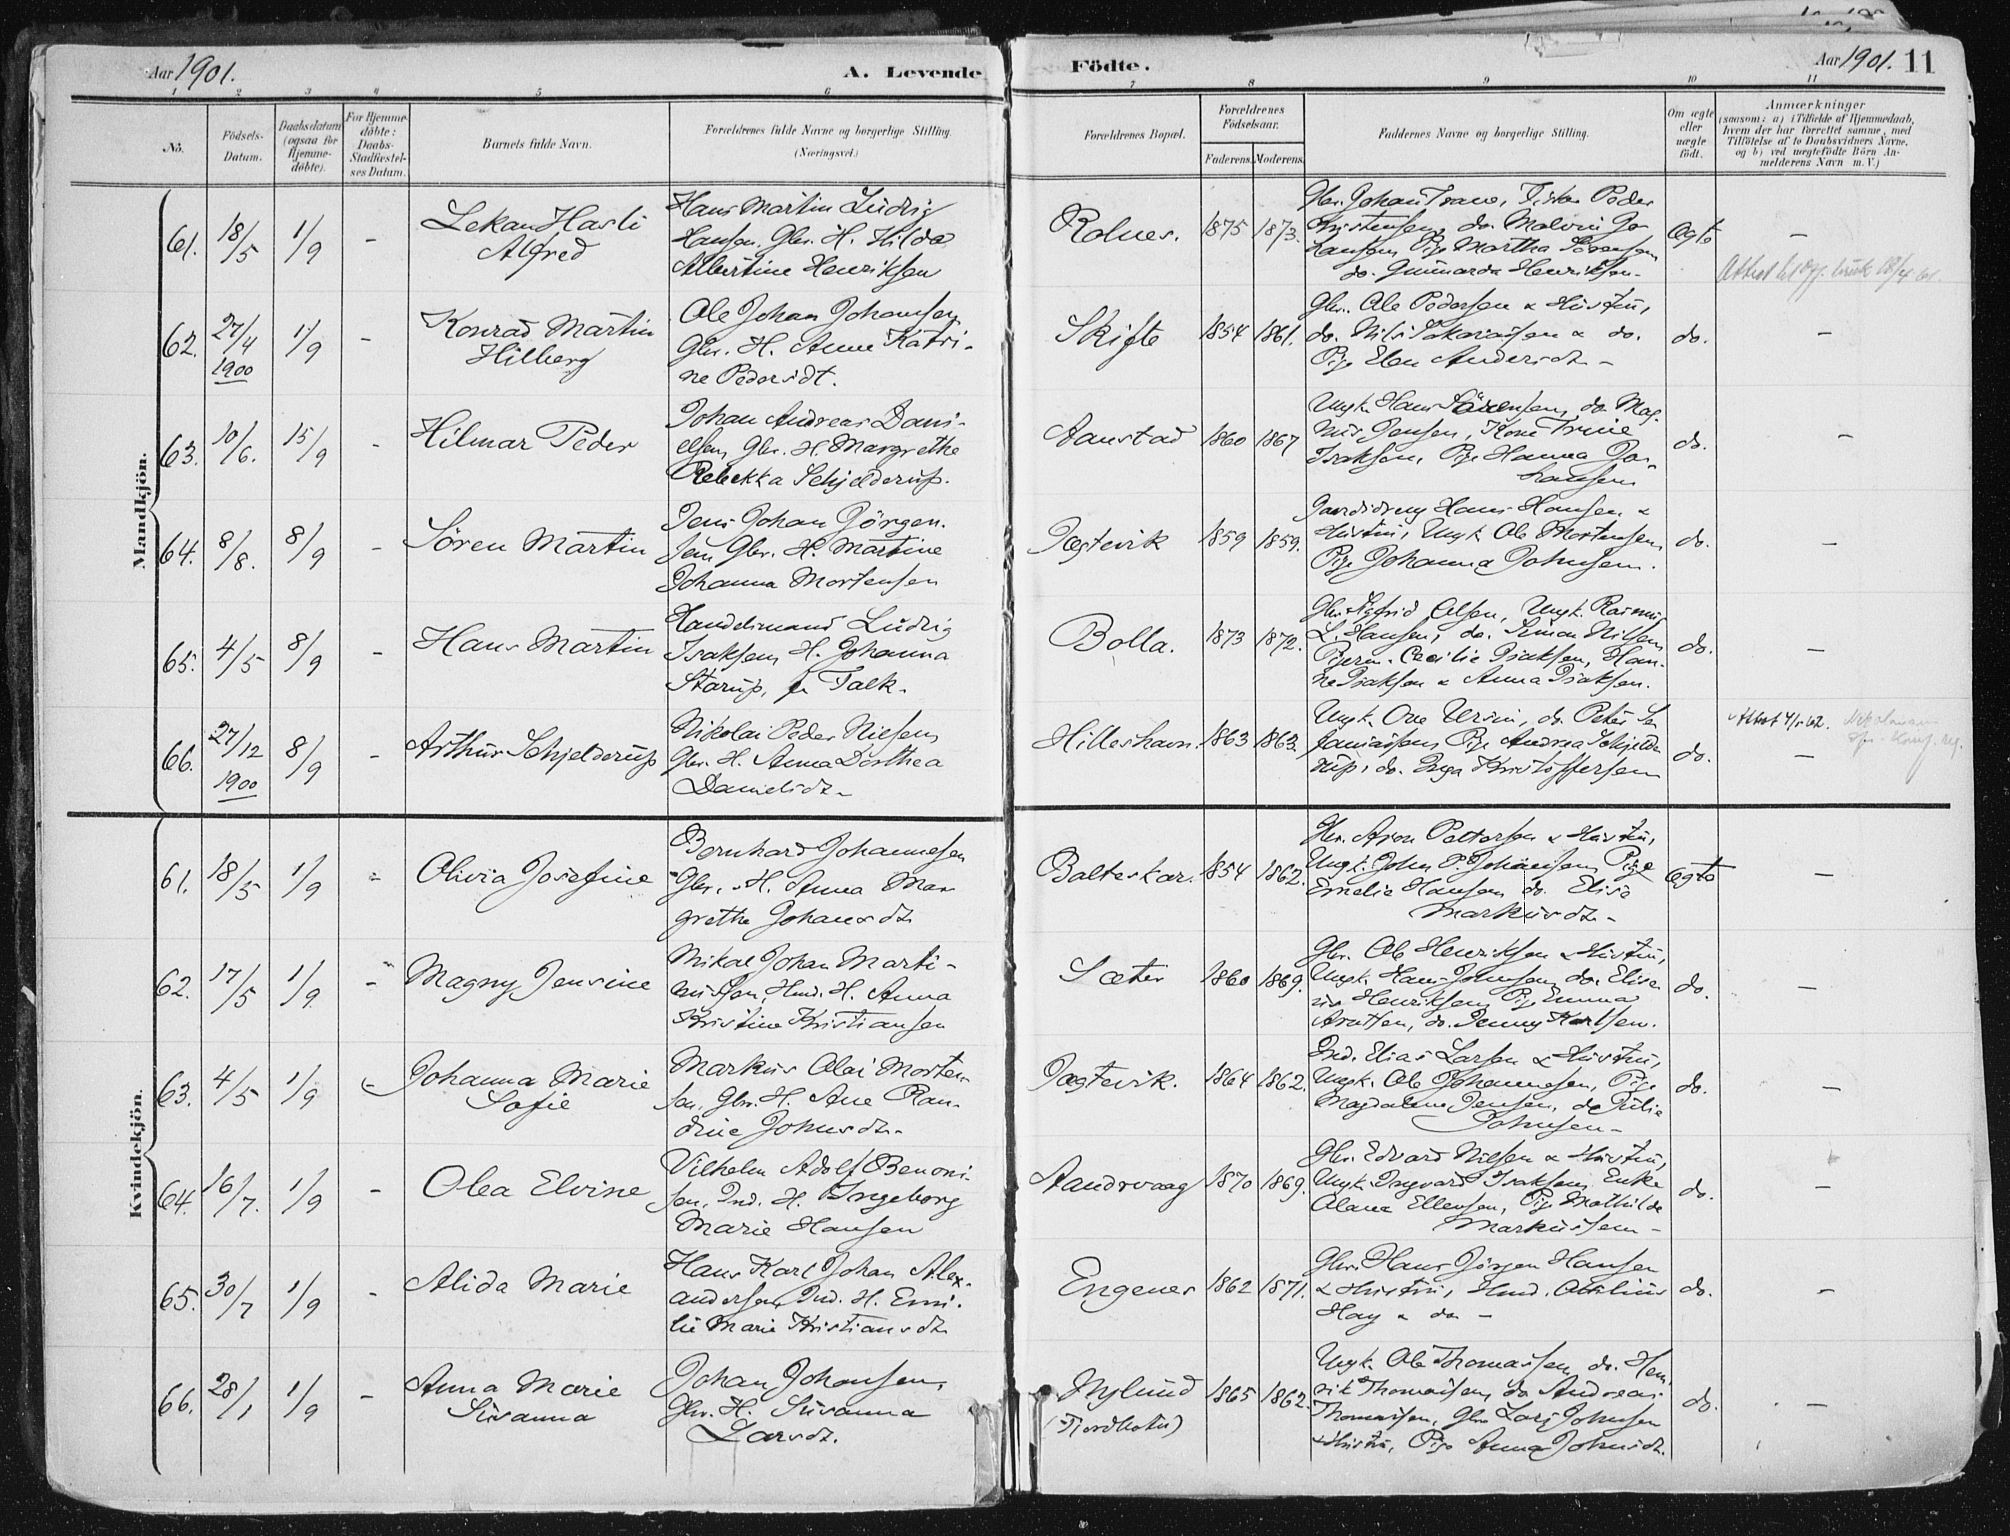 Aar 1901.
A. Levende
Födte.
Aar 1901. 11
1 2 3 4 5 6 7 8 9 10 11
No.
Födsels-
Datum.
Daabsdatum
(ogsaa for
Hjemme-
döbte).
For Hjemme-
döbte:
Daabs-
Stadfæstel-
ses Datum.
Barnets fulde Navn.
Forældrenes fulde Navne og borgerlige Stilling.
(Næringsvei.)
Forældrenes Bopæl.
Forældrenes
Födselsaar.
Faderens. Moderens.
Faddernes Navne og borgerlige Stilling.
Om ægte
eller
uægte
födt.
Anmærkninger
(saasom: a) i Tilfælde af Hjemmedaab,
hvem der har forrettet samme, med
Tilföielse af to Daabsvidners Navne.
og b) ved uægtefödte Börn An-
melderens Navn m. V.)
Mandkjön.
61. 18/5 1/9 -
Hasli
Alfred
Hans Martin Ludvig
Hansen, Gbr. H. Hilda
Albertine Henriksen
Rolnes. 1875 1873.
Gbr. Johan Peder
Kristensen, do. Malvin Jo-
hansen, Pige Martha
do. Gunnarda Henriksen-
Ægte -
Attest
62. 27/4 1900 1/9 -
Konrad Martin
Hilberg
Ole Johan Johansen
Gbr. H. Anne Katri-
ne Pedersdt.
Skifte 1854 1861.
Gbr. Ole Pedersen & Hustru,
do. Nils & do.
Pige Elen Andersdt -
do. -
63. 10/6. 15/9 -
Hilmar Peder
Johan Andreas Dani-
elsen, Gbr. H. Margrethe
Rebekka Schjelderup.
Aanstad 1860 1867
Ungk. Hans Sörensen, do. Mag-
nus Jensen, Kone Trine
Isaksen, Pige Hanna Jo-
hansen
do. -
64. 8/8. 8/9 -
Søren Martin
Jens Johan Jörgen-
sen Gbr. H. Martine
Johanna Mortensen
Jægtevik 1859 1859.
Hans Hansen &
Hustru, Ungk. Ole Mortensen,
Pige Johanna Johnsen.
do. -
65. 4/5 8/9 -
Hans Martin
Handelsmand Ludvig
Isaksen, H. Johanna
Starup, f. Falk.
Bolla. 1873 1872.
Gbr. Sigfrid Olsen, Ungk. Rasmus
L. Hansen, do. Simon Nilsen
Pigerne Cecilie Isaksen, Han-
na Isaksen & Anna Isaksen.
do. -
66. 27/12 1900 8/9 -
Arthur Schjelderup
Nikolai Peder Nielsen,
Gbr. H. Anna Dorthea
Danielsdt.
Hilleshavn. 1863 1863.
Ungk. Ove do. Peter
Pige Andrea Schjelde-
rup, do. Inga Kristoffersen
do. -
Attest
Kvindekjön.
61. 18/5 1/9 -
Olivia Josefine
Bernhard Johannesen
Gbr. H. Anna Mar-
grethe Johansdt.
Balteskar. 1854 1862.
Gbr. Aron Pettersen & Hustru,
Ungk. John P. Johansen, Pige
Emelie Hansen, do. Elisa
Markusdt. -
Ægte -
62. 17/5 1/9 -
Magny Jensine
Mikal Johan Marti-
nussen, Hmd. H. Anna
Kristine Kristiansen
Sæter 1860 1869.
Gbr. Ole Henriksen & Hustru,
Ungk. Hans Johnsen, do. Elise-
us Henriksen, Pige Emma
do. Jenny Karlsen.
do. -
63. 4/5 1/9 -
Johanna Marie
Sofie
Markus Olai Morten-
sen, Gbr. H. Ane Ran-
dine Johnsdt.
Jægtevik. 1864 1862.
Ind. Elias Larsen & Hustru,
Ungk. Ole Johannesen, Pige
Magdalene Jensen, do. Julie
Johnsen -
do. -
64. 16/7. 1/9 -
Olea Elvine
Vilhelm Adolf Benoni-
sen, Ind. H. Ingeborg
Marie Hansen
Aandervaag 1870 1869.
Gbr. Edvard Nilsen & Hustru,
Ungk. Ingvard Isaksen, Enke
Olana Ellevsen, Pige Mathilde
Markussen -
do. -
65. 30/7 1/9 -
Alida Marie
Hans Karl Johan Alex-
andersen, Ind. H. Emi-
lie Marie Kristiansdt.
Engenes 1862 1871.
Gbr. Hans Jörgen Hansen
& Hustru, Hmd.
Hay & do -
do. -
66. 28/1 1/9 -
Anna Marie
Susanna
Johan Johansen,
Gbr. H. Susanna
Larsdt.
Nylund
(Fjordbotn)
1865 1862.
Ungk. Ole Thomassen, do. Hen-
rik Thomassen, do Andreas
Thomassen, Gbr. Lars Johnsen
& Hustru, Pige Anna Johnsdt.
do. -